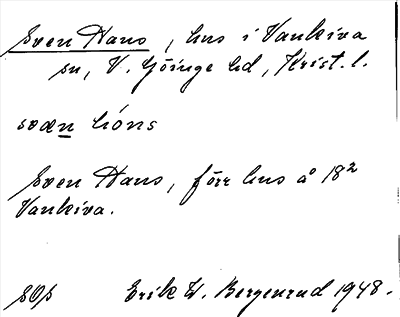 Sven Hans, hus i Vankiva
sn, V. Göinge hd, Krist. l.
svæn hóns
Sven Hans, förr hus å 18²
Vankiva.
Erik W. Bergenrud 1948.